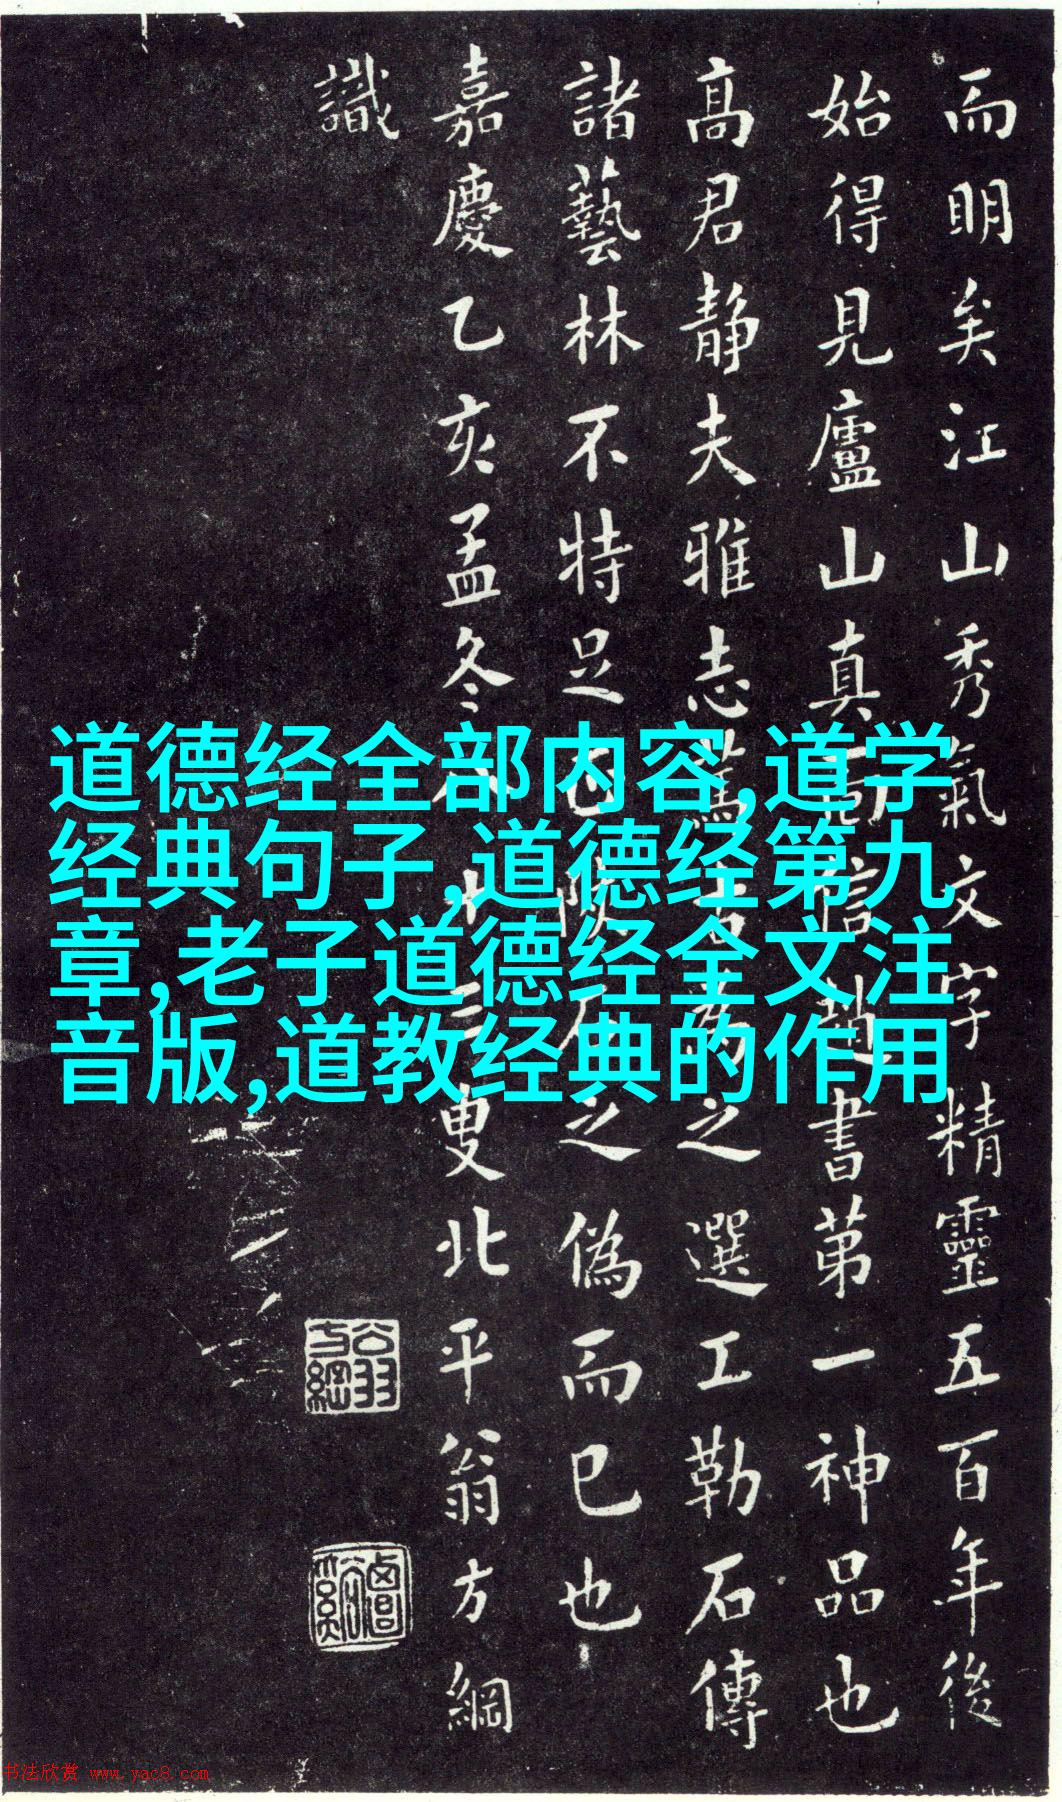 而明矣江山秀氣文字精靈五百年後
始得見廬山真信書第一神品也
高君靜夫雅志之選工勒石傳
諸藝林不特足之偽而已也
嘉慶乙亥孟冬叟北平翁方綱
識
道德经全部内容,道学
经典句子,道德经第九
章,老子道德经全文注
音版,道教经典的作用
翁方綱
书法欣赏 www.yac8.com